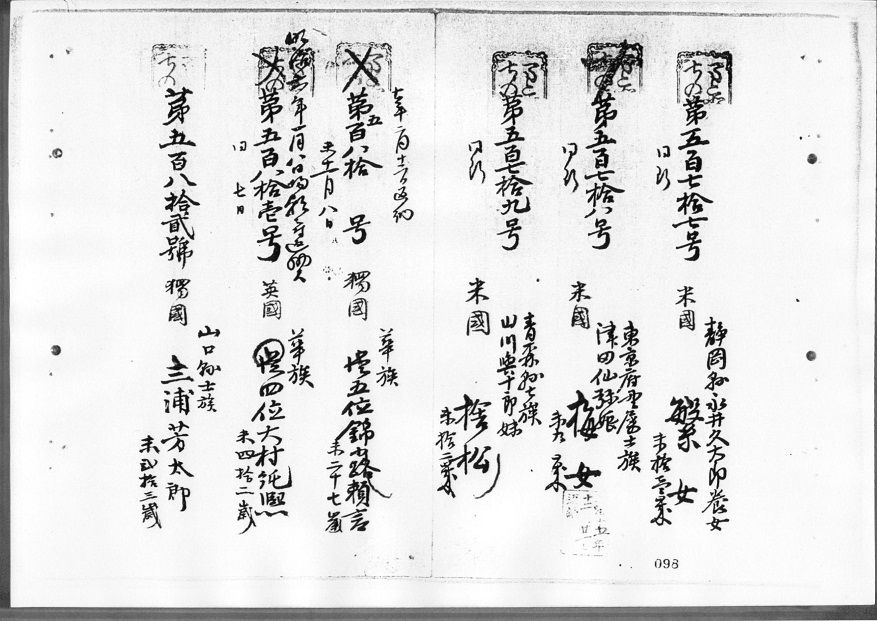 第五百七拾七号
同行
米國
静岡縣永井久太郎養女
繁女
未拾三歳
第五百七拾八号
同行
米國
東京府貫属士族
津田仙弥娘
梅女
未九歳
第五百七拾九号
同行
米國
青森縣士族
山川與十郎妹
捨松
未拾二歳
第五百八拾号
未十一月八日
獨國
華族
従五位錦小路頼言
未二十七歳
第五百八拾壱号
同七日
英國
華族
従四位大村純熈
未四拾二歳
第五百八拾貳號
獨國
山口縣士族
三浦芳太郎
未弐拾三歳
098